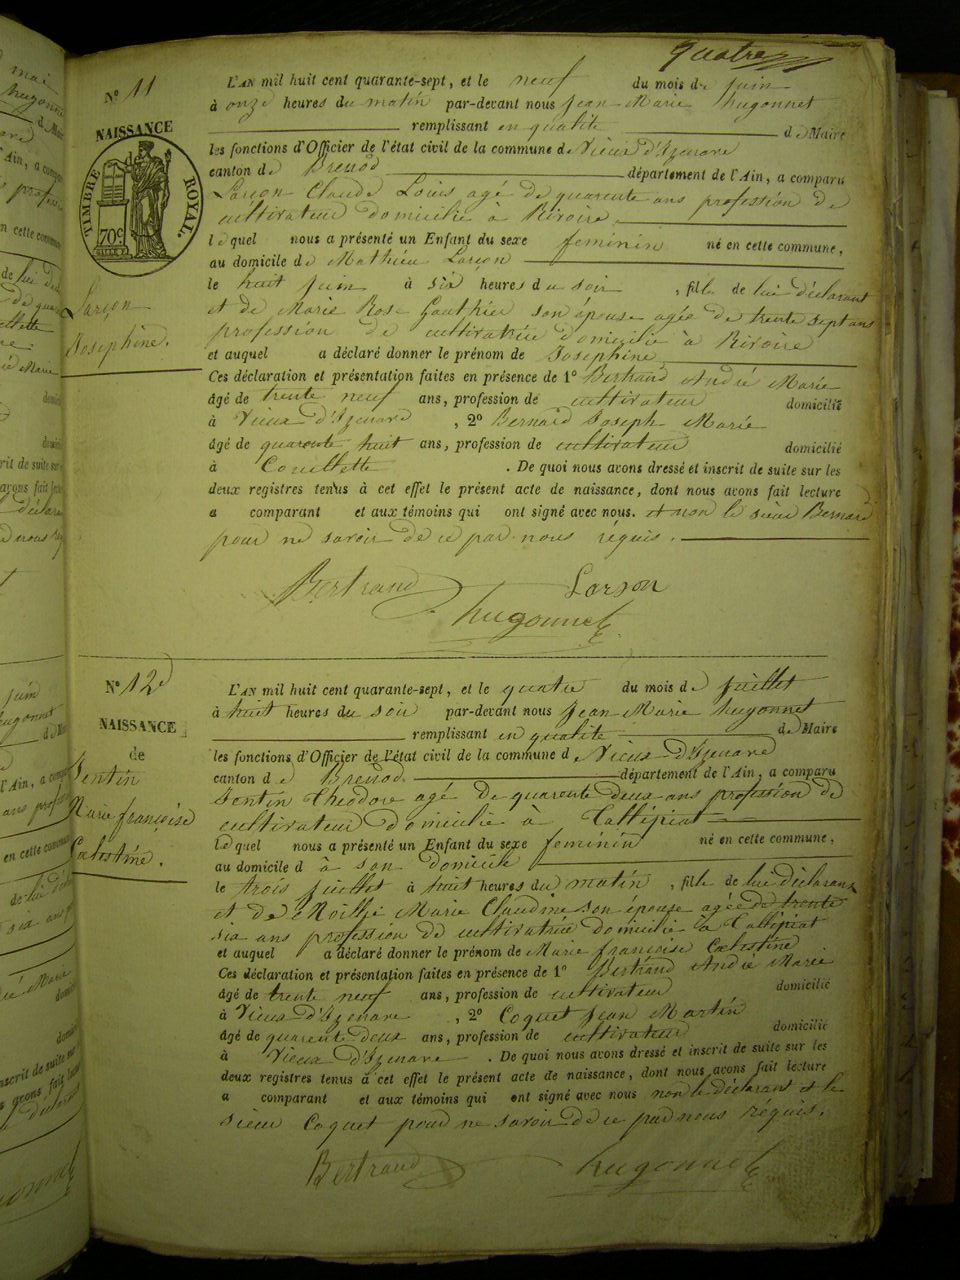 quatre
N° 11
NAISSANCE
TIMBRE ROYAL.
70c
Larçon
Josephine.
L'AN mil huit cent quarante-sept, et le neuf du mois de juin
à onze heures du matin par-devant nous Jean Marie hugonnet
remplissant en qualité de Maire
les fonctions d'Officier de l'état civil de la commune de Vieux d'Izenave
canton de Brenod département de l'Ain, a comparu
Larçon Claude Louis agé de quarente ans profession de
cultivateur domicilié à Riroire
lequel nous a présenté un Enfant du sexe feminin né en cette commune,
au domicile de Mathieu Larçon
le huit juin à six heures du soir , fille de lui déclarant
et de Marie Rose Gauthier son épouse agée de trente sept ans
profession de cultivatrice domiciliée à Riroire
et auquel a déclaré donner le prénom de Josephine
Ces déclaration et présentation faites en présence de 1° Bertrand André Marie
âgé de trente neuf ans, profession de cultivateur domicilié
à Vieux d'Izenave , 2° Bernard Joseph Marie
âgé de quarente huit ans, profession de cultivateur domicilié
à Couillette . De quoi nous avons dressé et inscrit de suite sur les
deux registres tenus à cet effet le présent acte de naissance, dont nous avons fait lecture
a comparant et aux témoins qui ont signé avec nous. et non le sieur Bernard
pour ne savoir de ce par nous réquis.
Bertrand Larçon
hugonnet
N° 12
NAISSANCE
de
Jentin
Marie françoise
Cœlestine.
L'AN mil huit cent quarante-sept, et le quatre du mois de juillet
à huit heures du soir par-devant nous Jean Marie hugonnet
remplissant en qualité de Maire
les fonctions d'Officier de l'état civil de la commune d Vieux d'Izenave
canton de Brenod. département de l'Ain, a comparu
Jentin Theodore agé de quarente deux ans profession de
cultivateur domicilié à Tallipiat
lequel nous a présenté un Enfant du sexe feminin né en cette commune,
au domicile d à son domicile
le trois juillet à huit heures du matin , fille de lui déclarant
et de Marie Claudine son épouse agée de trente
six ans profession de cultivatrice domiciliée à Tallipiat
et auquel a déclaré donner le prénom de Marie françoise Cœlestine
Ces déclaration et présentation faites en présence de 1° Bertrand André Marie
âgé de trente neuf ans, profession de cultivateur domicilié
à Vieux d'Izenave , 2° Coquet Jean Martin
âgé de quarente deux ans, profession de cultivateur domicilié
à Vieux d'Izenave . De quoi nous avons dressé et inscrit de suite sur les
deux registres tenus à cet effet le présent acte de naissance, dont nous avons fait lecture
a comparant et aux témoins qui ont signé avec nous non le déclarant et le
sieur Coquet pour ne savoir de ce par nous réquis.
Bertrand hugonnet